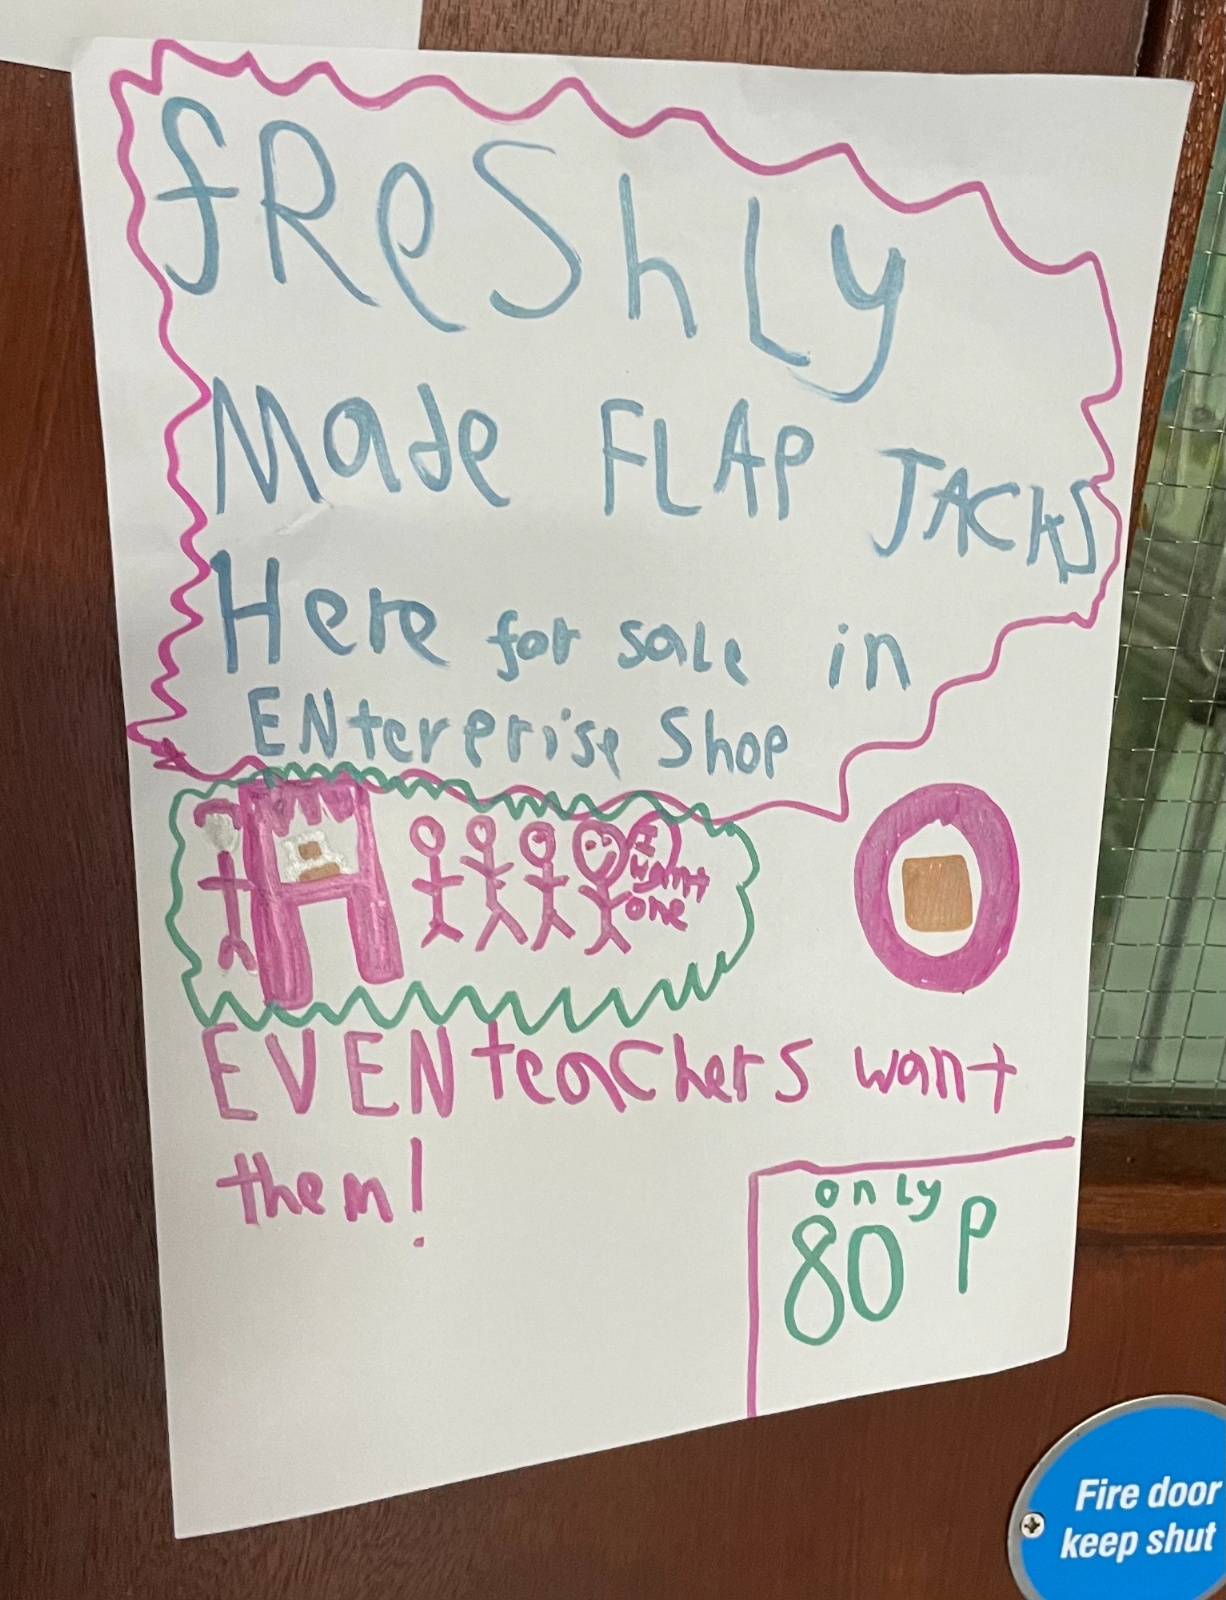 fReShLy
Made FLAP JACKS
Here for sale in
ENterprise Shop
I
want
one
EVEN teachers want
them!
only
80 P
Fire door
keep shut